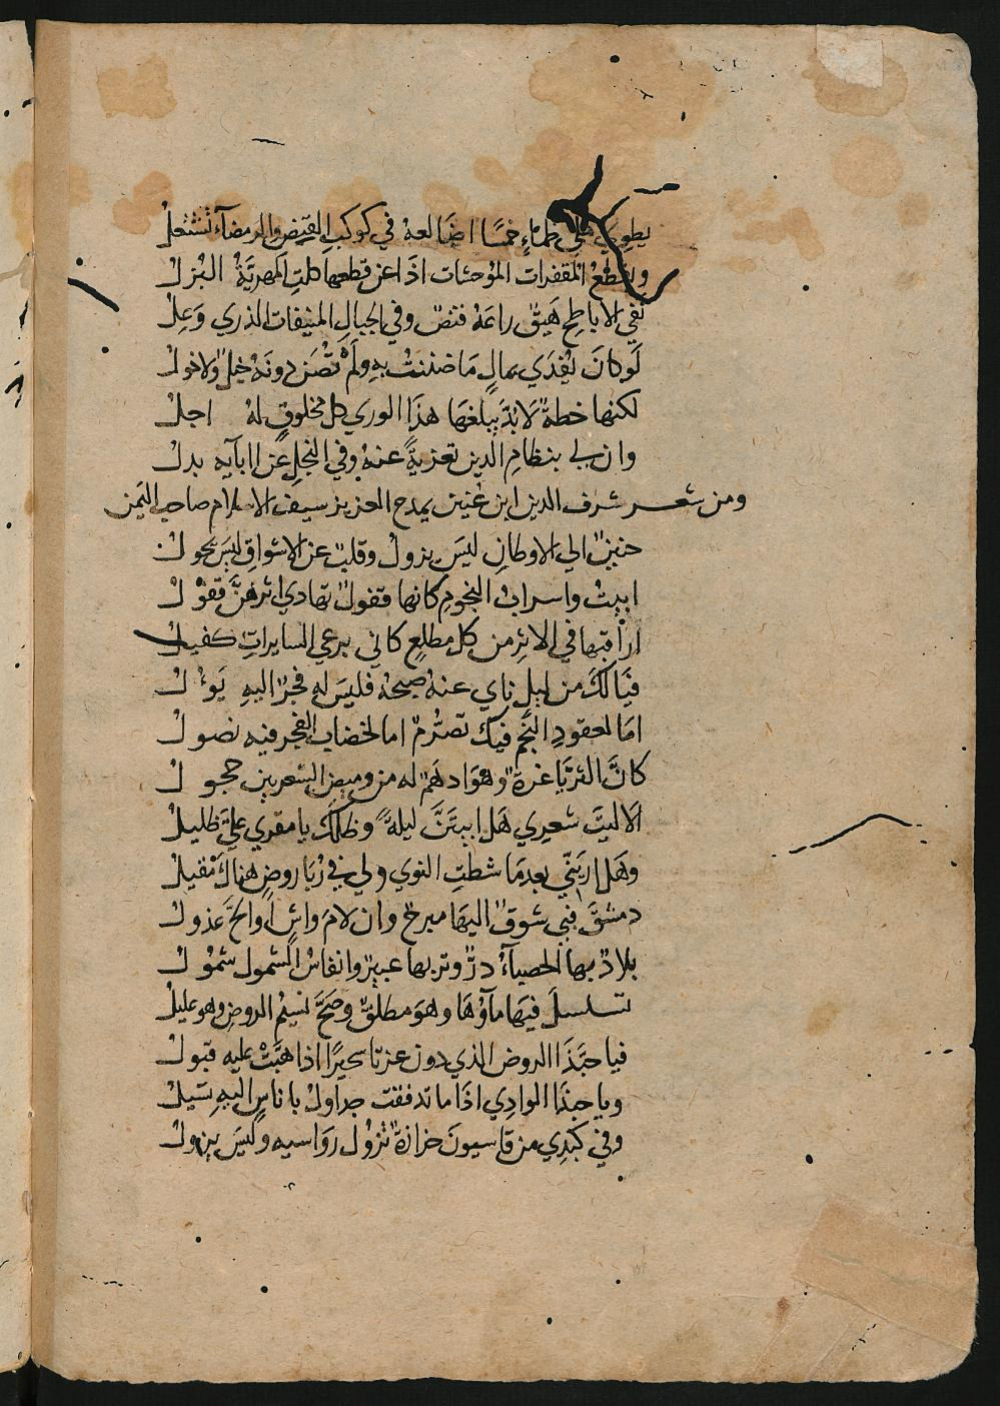 يطوي على ظماءٍ خمسًا اضالعه في كوكب القيض والرمضآء تشتعلُ
ويقطعُ المقفرات الموحشات اذا عن قطعها كلت المهريَّةُ البُزلُ
نفي الاباطحِ هَيقٌ راعَهُ قنصٌ وفي الجبالِ المنيفات الذري وَعِلُ
لَو كانَ يُفدَي بمالٍ مَا ضننتُ بهِ ولَمْ تُصَن دونَهُ خيلٌ ولا خولُ
لكنها خطةٌ لَابُدَّ يبلغهَا هذَا الوري كل مخلوقٍ لهُ اجلُ
وان لي بنظامِ الدين تعزيةً عنهُ وفي النجلِ عن اابآيه بدلُ
ومن شعر شرف الدين ابن عُنين يمدح العزيز سيف الاسلام صاحب اليمن
حنينٌ الي الاوطانِ ليسَ يزولُ وقلبٌ عن الاشواقِ ليسَ يحولُ
ابيتُ واسرابُ النجومِ كانها قفولٌ تهادي اثرهنَّ قفوْلُ
اراقبها في الاثرِ من كل مطلعٍ كاني برعي السايراتِ كفيلُ
فيَا لكَ من ليلٍ ناي عنهُ صبحهُ فليسَ لهِ فجرٌ اليهِ يَوُلُ
امَا لعقودِ النجم فيكَ تصرُّمٌ اما لخضاب الفجر فيه نصولُ
كانَّ الثريَّا غرةٌ وهوَ ادهَمٌ له من وميض الشعريين حجولُ
الَا ليتَ شعرِي هَل ابيتَنَّ ليلةً وظلكَ يا مقري عليَّ ظليلُ
وهَل ارَينّي بعدمَا شطتِ النوي ولي في رُبَا روضٍ هناكَ مَقيلُ
دمشقَ فبي شوقٌ اليهَا مبرحٌ وان لامَ واشٍ او الحَّ عذولُ
بلادٌ بها الحصبآءُ درٌّ وتربها عبيرٌ وانفاسُ الشمول شمُوْلُ
تسلسلَ فيهَا مآوُهَا وهوَ مطلقٌ وصَحَّ نسيمُ الروضِ وهو عليلُ
فيا حبَّذَا الروض الذي دون عزتا سحيرًا اذا هَبَّتْ عليه قبولُ
ويا حبذَا الوادِي اذَا ما تدفقت جداولُ باناسٍ اليهِ تسيلُ
وفي كبدِي من قاسيونَ حزازةٌ تزوُل رَوَاسيه وليسَ يزولُ